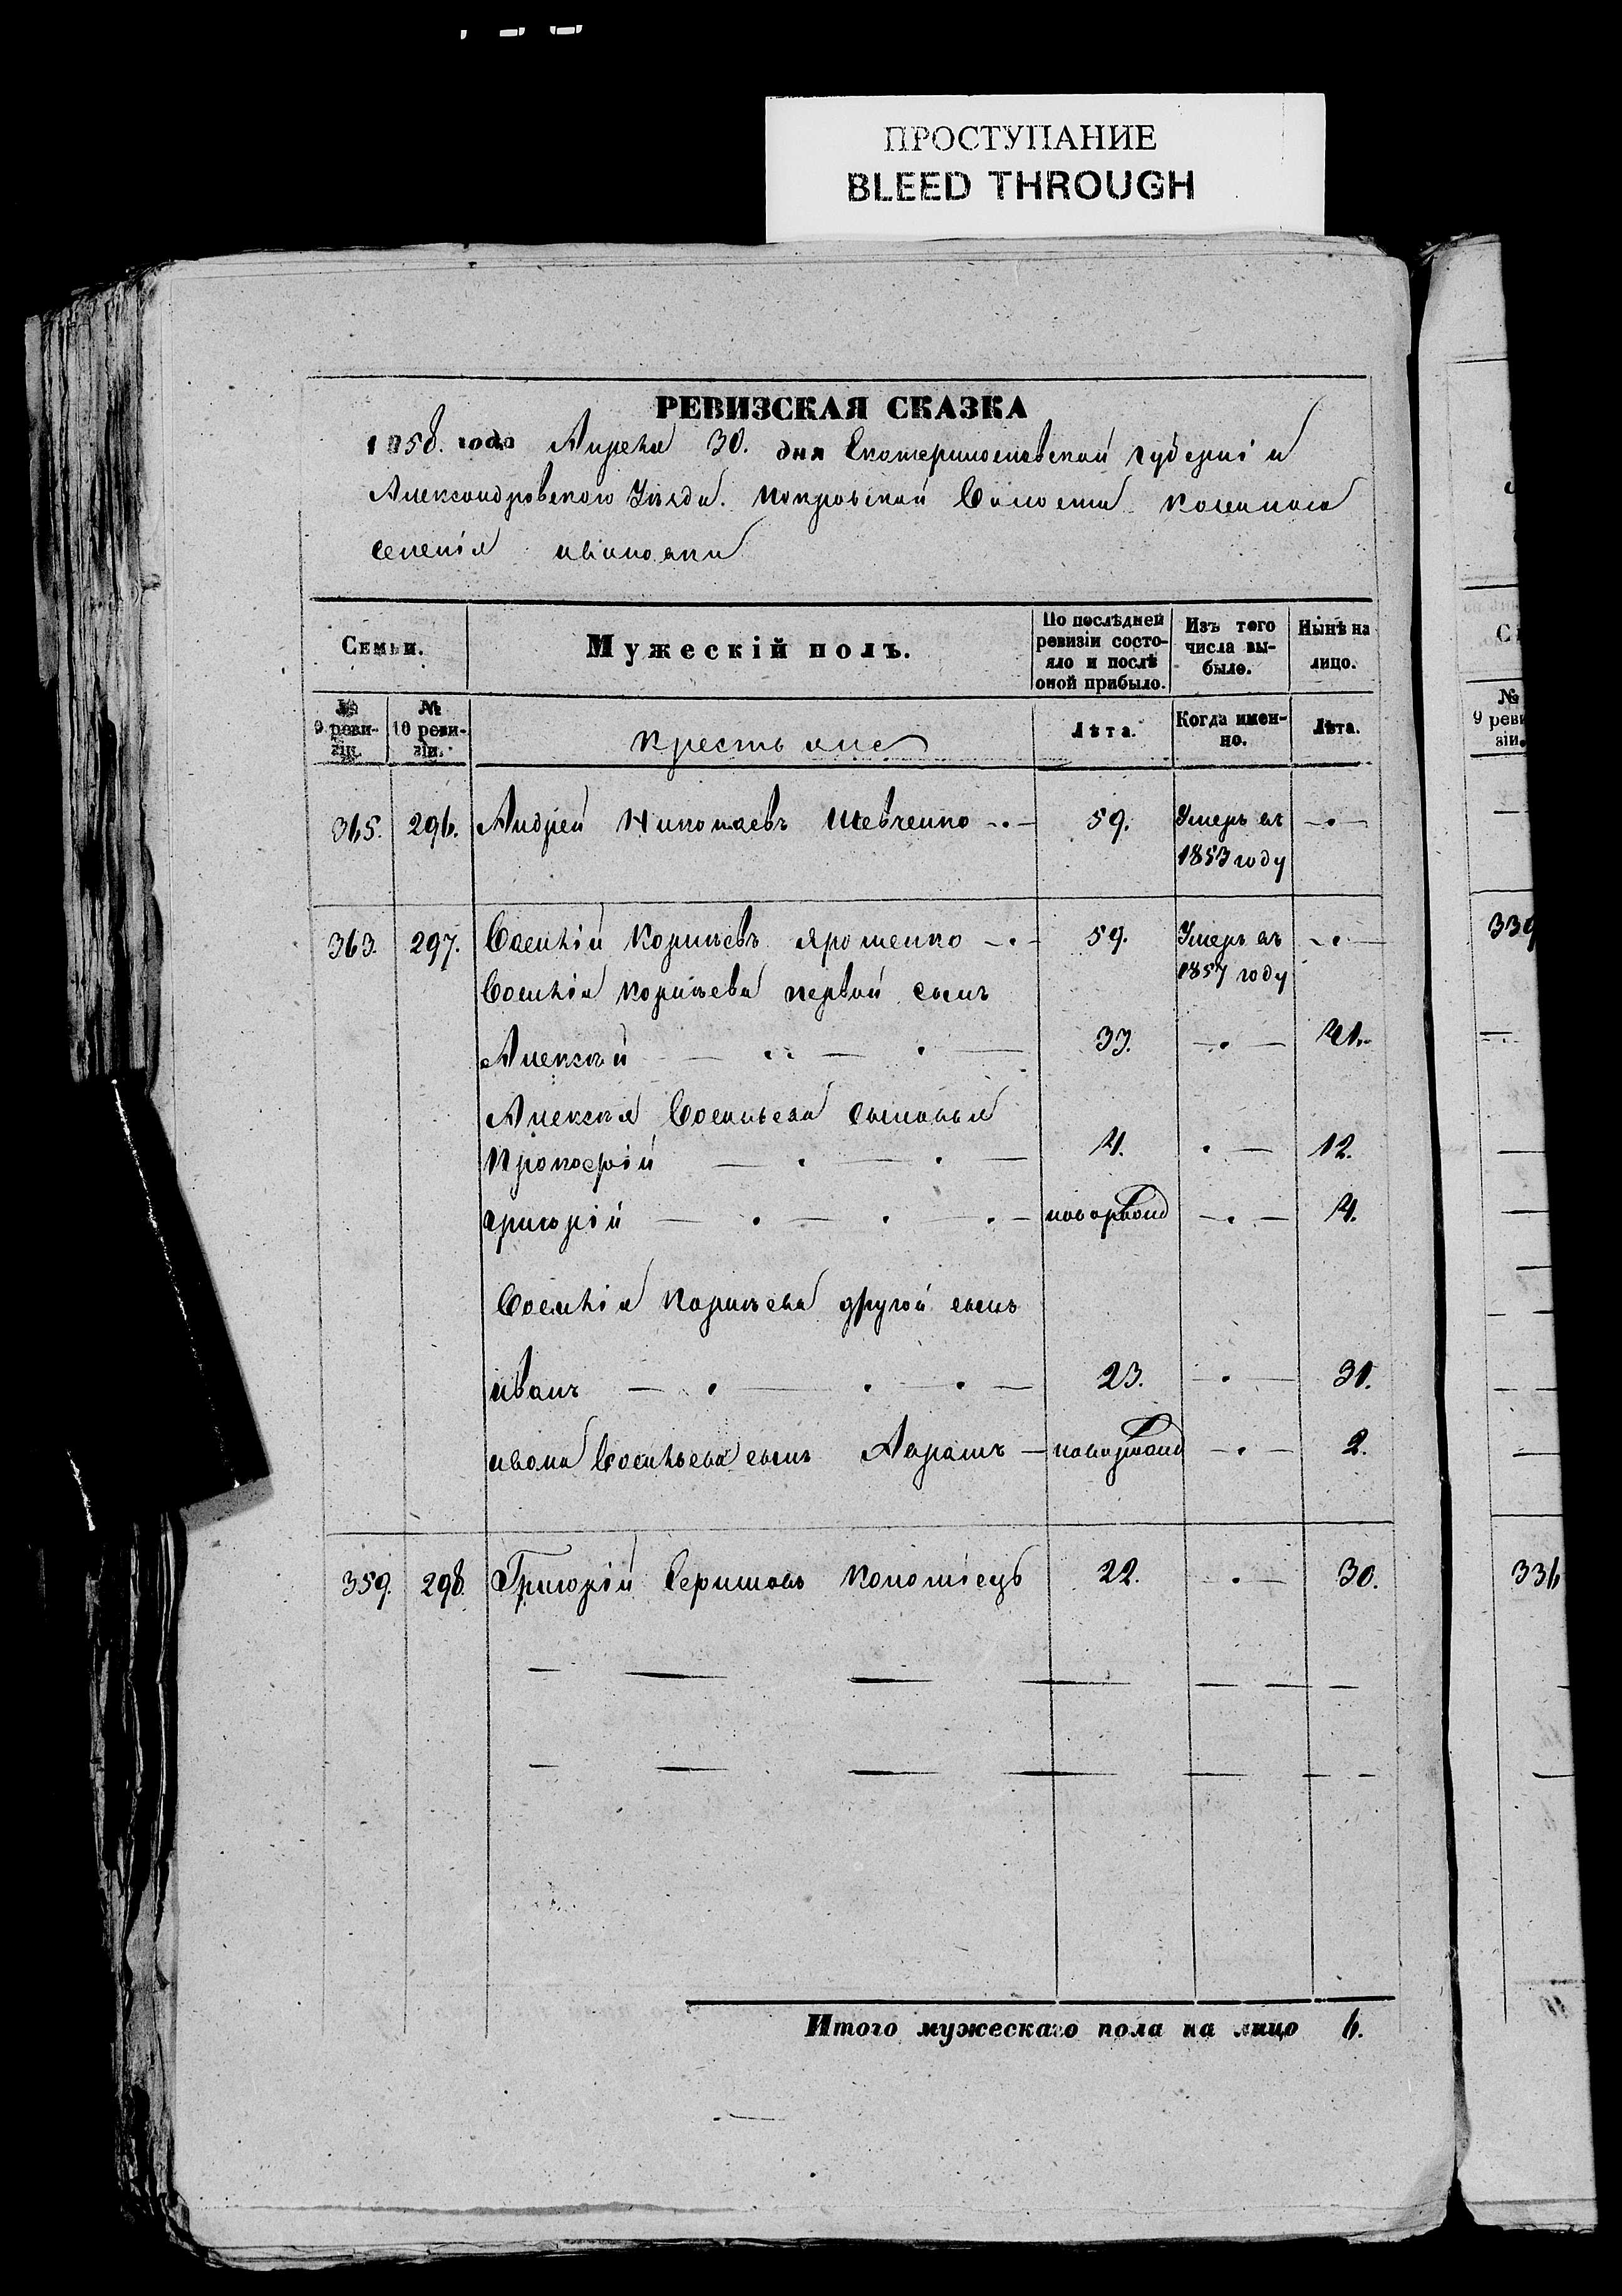 ПРОСТУПАНИЕ
BLEED THROUGH
РЕВИЗСКАЯ СКАЗКА
1858. года Апреля 30. дня Екатеринославской губерніи
Александровского Уезда. Покровской Волости казенного
селенія Ивановки
Семьи.
Мужескій полъ.
По послѣдней ревизіи состояло и послѣ оной прибыло.
Изъ того числа выбыло.
Нынѣ на лицо.
№ 9 ревизіи.
№ 10 ревизіи.
Крестьяне
Лѣта.
Когда именно.
Лѣта.
365. 296. Андрей Николаевъ Шевченко 59. Умеръ въ
1853 году
363. 297. Василій Корнѣевъ Ярошенко 59. Умеръ въ
1857 году
Василія Корнѣева первый сынъ
Алексѣй 33. 41.
Алексѣя Васильева сыновья
Прокофій 4. 12.
Григорій новорожд 4.
Василія Корнѣева другой сынъ
Иванъ 23. 31.
Ивана Васильева сынъ Аврамъ новорожд 2.
359. 298. Григорій Коломіецъ 22. 30.
Итого мужескаго пола на лицо 6.
339
№
9 реви
зіи.
336